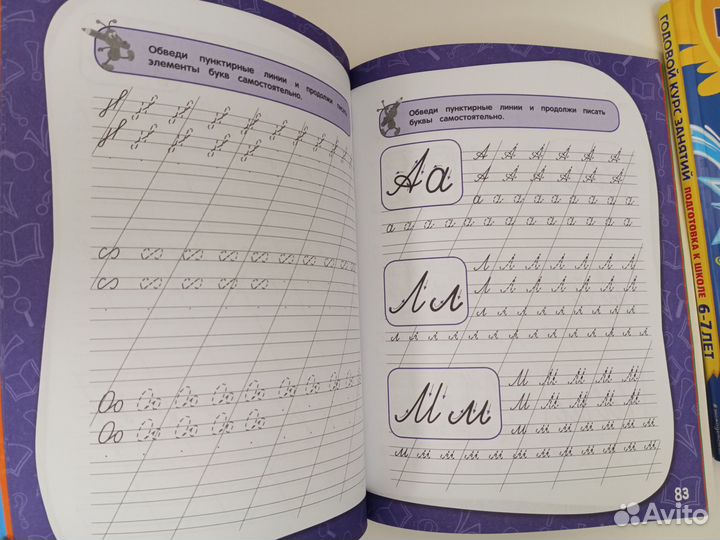 Обведи пунктирные линии и продолжи писать
элементы букв самостоятельно.
Обведи пунктирные линии и продолжи писать
буквы самостоятельно.
Аа
А А А А А А
А А А А А А
а а а а а а а а
а а а а а а а а а а а а
Лл
Л Л Л Л Л Л
Л Л Л Л Л Л
л л л л л л л л
л л л л л л л л л л л л
Мм
М М М М М
М М М М М
м м м м м м
м м м м м м м м м м
83
ГОДОВОЙ КУРС ЗАНЯТИЙ
ПОДГОТОВКА К ШКОЛЕ 6-7 ЛЕТ
Avito